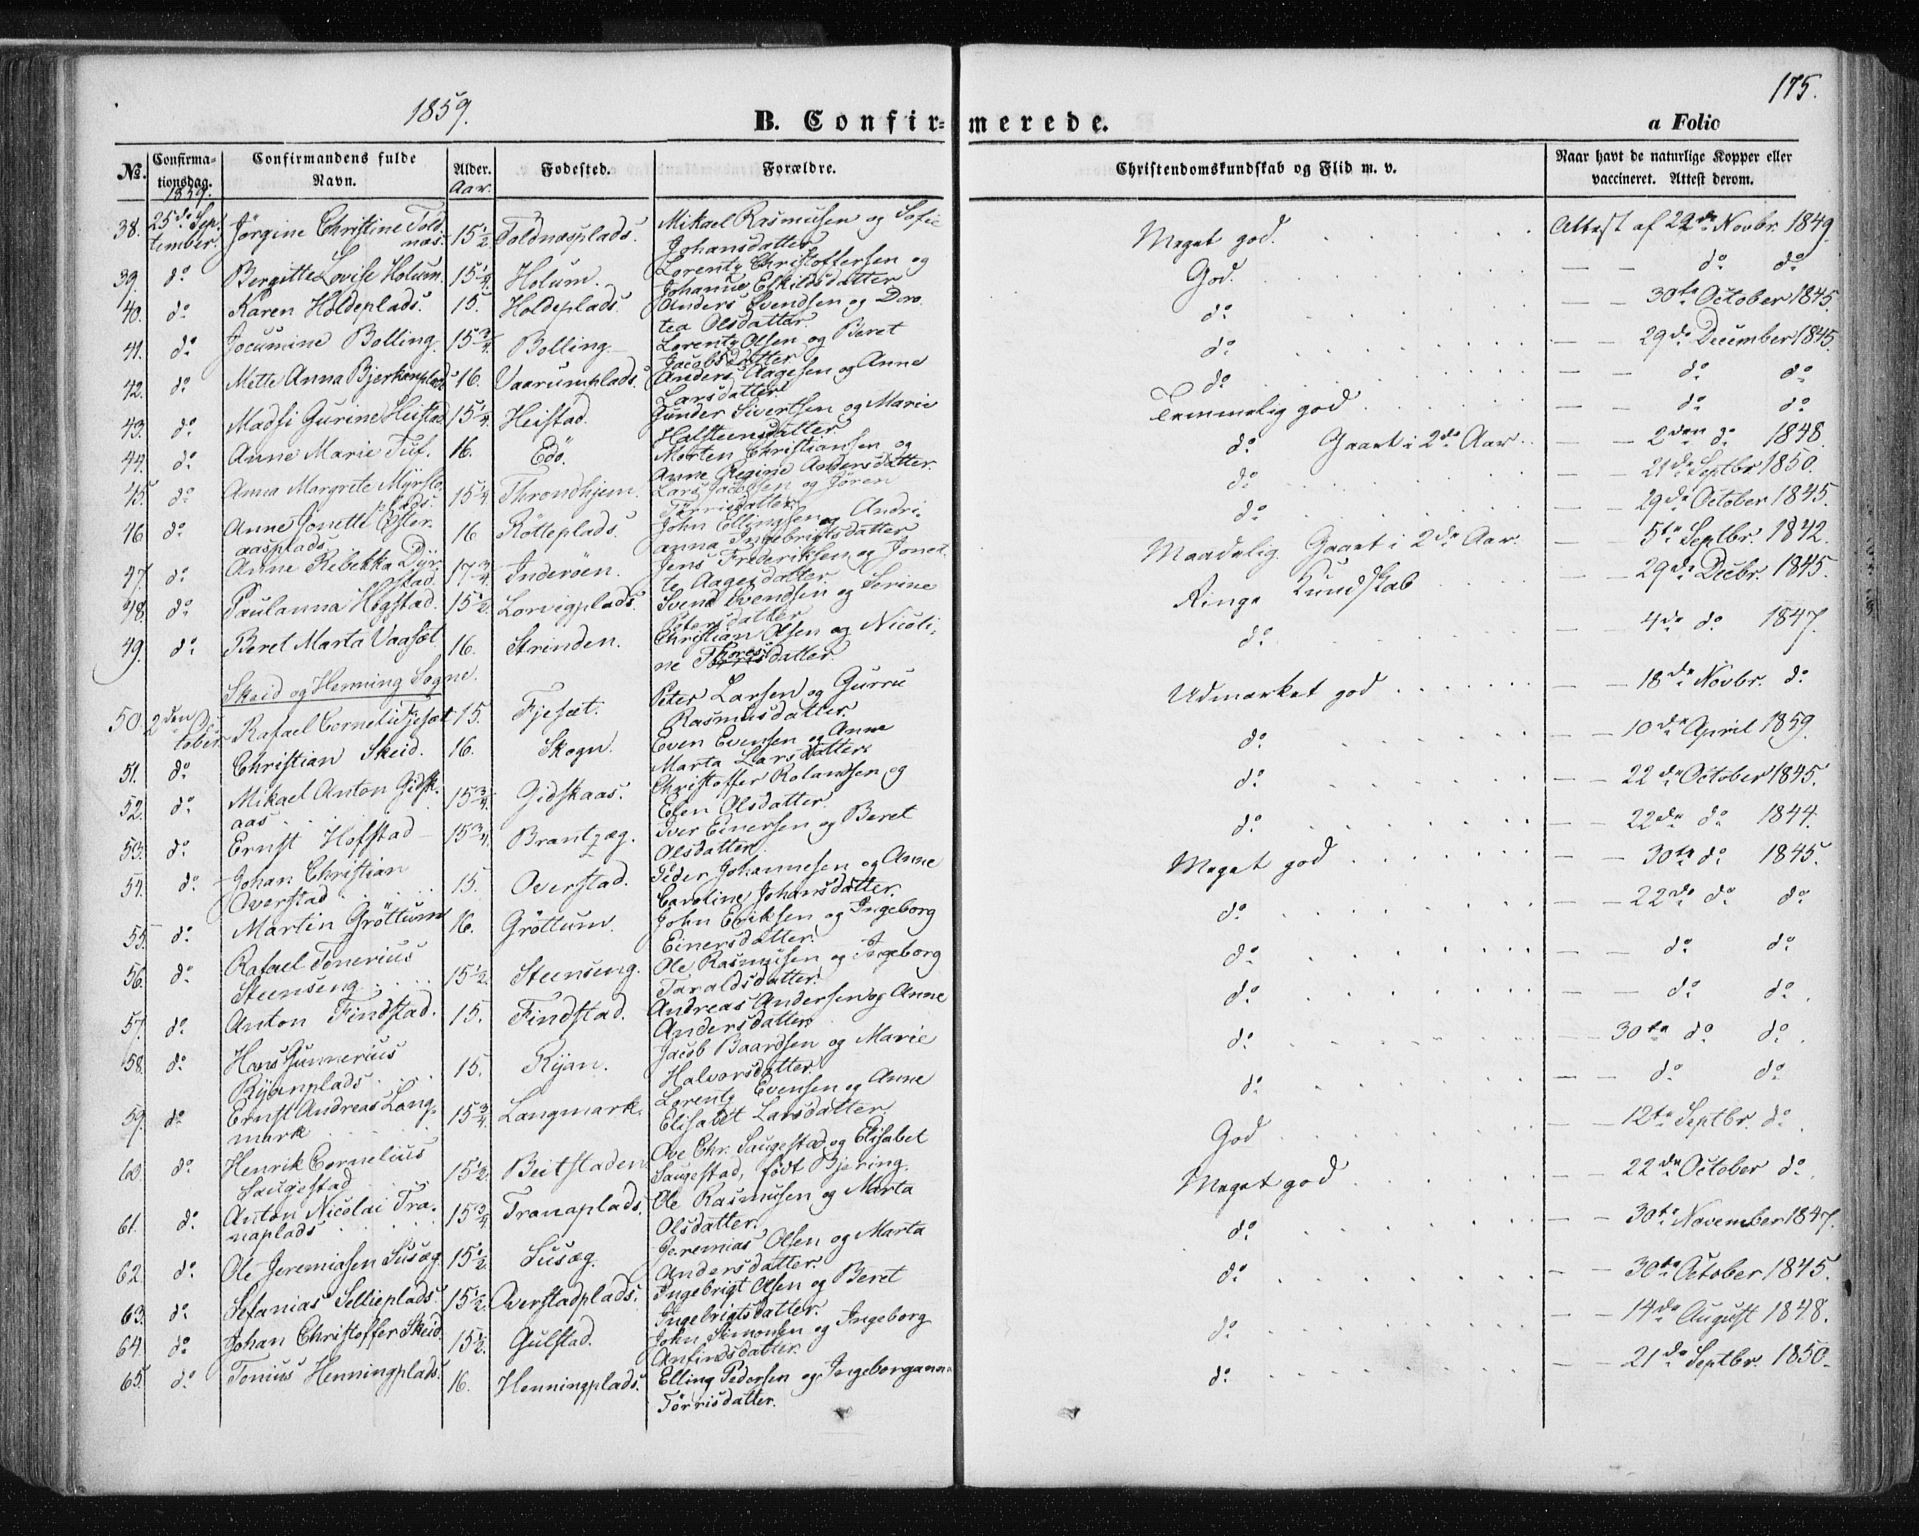 1859.
175.
B. Confirmerede.
a Folio
No. Confirmationsdag. Confirmandens fulde Navn. Alder. Aar. Fødested. Forældre. Christendomskundskab og Flid m. v. Naar havt de naturlige Kopper eller vaccineret. Attest derom.
1859
38. 25de September. Jörgine Christine Toldnæs. 15 1/2 Toldnæsplads. Mikael Rasmussen og Sofie Johansdatter. Meget god. Attest af 22de Novbr. 1849.
39. do Bergitte Lovise Holum. 15 1/4 Holum. Lorentz Christoffersen og Johanne Eskildsdatter God. — — do do
40. do Karen Holdeplads. 15. Holdeplads. Anders Svendsen og Dorotea Olsdatter. do — — 30te October 1845.
41. do Jocumine Bolling. 15 3/4 Bolling Lorentz Olsen og Beret Jacobsdatter do — — 29de December 1845.
42. do Mette Anna Bjerkenplads 16. Vaarumplads. Anders Aagesen og Anne Larsdatter. do — — do do
43. do Madsi Gurine Heistad 15 1/4 Heistad. Gunder Sivertsen og Marie Halsteensdatter Temmelig god — — do do
44. do Anne Marie Tuf. 16. Edö. Morten Christiansen og Anne Regine Andersdatter. do Gaaet i 2de Aar. — — 2den do 1848.
45. do Anna Margrete Myrstoplads. 15 1/4 Throndhjem. Lars Jacobsen og Jören Törrisdatter. do — — 21de Septbr 1850.
46. do Anne Jonette Österaasplads 16 Rötteplads. John Ellingsen og Andrianna Ingebrigtsdatter do — — 29de October 1845.
47. do Anne Rebekka Dyrstad. 17 3/4 Inderöen. Jens Frederiksen og Jonette Aagesdatter. Maadelig. Gaaet i 2de Aar. — — 5te Septbr. 1842.
48. do Paulanna Högstad. 15 1/2 Lorvigplads. Svend Svendsen og Serine Petersdatter Ringe Kundskab — — 29de Decbr. 1845.
49. do Beret Marta Vaasæt 16. Strinden. Christian Olsen og Nicoline Thoresdatter. do — — 4de do 1847.
Skeid og Henning Sogne.
50. 2den October. Rafael Corneli Fjesæt 15. Fjesæt. Peter Larsen og Gurru Rasmusdatter. Udmærket god — — 18de Novbr. do
51. do Christian Skeid. 16. Skogn. Even Evensen og Anne Marta Larsdatter do — — 10de April 1859.
52. do Mikael Anton Gidskaas 15 3/4. Gidskaas. Christoffer Rolandsen og Elen Olsdatter. do — — 22de October 1845.
53. do Ernst Hofstad 15 3/4. Brantzæg. Iver Einersen og Beret Olsdatter do — — 22de do 1844.
54. do Johan Christian Overstad 15. Overstad. Peder Johannesen og Anne Caroline Johansdatter. Meget god — — 30te do 1845.
55. do Martin Gröttum 16. Gröttum. John Eriksen og Ingeborg Einersdatter do — — 22de do do
56. do Rafael Tonerius Steenseng 15 1/2. Steenseng. Ole Rasmusen og Ingeborg Taraldsdatter. do — — do do
57. do Anton Findstad. 15. Findstad. Andreas Andersen og Anne Andersdatter do — — do do.
58. do Hans Gunnerius Ryanplads 15. Ryan. Jacob Baardsen og Marie Halvorsdatter. do — — 30te do do
59. do Ernst Andreas Langmark 15 3/4 Langmark. Lorentz Evensen og Anne Elisabet Larsdatter. do — — do do
60. do Henrik Cornelius Saugestad 15 1/2 Beitstaden Ove Chr. Saugestad og Elisabet Saugestad, født Bjering. God — — 12te Septbr. do.
61. do Anton Nicolai Tranaplads 15 3/4 Tranaplads. Ole Rasmusen og Marta Olsdatter. Meget god — — 22de October do.
62. do Ole Jeremiasen Susæg 15 1/2 Susæg. Jeremias Olsen og Marta Andersdatter do — — 30te November 1847.
63. do Sefanias Sellieplads. 15 1/2. Overstadplads. Ingebrigt Olsen og Beret Ingebrigtsdatter. do — — 30te October 1845.
64. do Johan Christoffer Skeid. 15 1/2. Gulstad. John Simonsen og Ingeborg Anfindsdatter. do — — 14de August 1848.
65. do Tonius Henningplads. 16. Henningplads. Elling Pedersen og Ingeborganna Törrisdatter. do — — 21de Septbr. 1850.